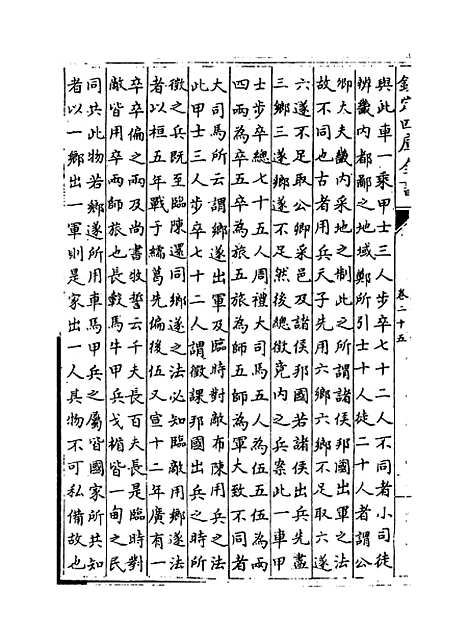 欽定四庫全書
卷二十五
與此車一乘甲士三人步卒七十二人不同者小司徒
辨畿內都鄙之地域鄭所引士十人徒二十人者謂公
卿大夫畿內采地之制此之所謂諸侯邦國出軍之法
故不同也古者用兵天子先用六鄉六鄉不足取六遂
六遂不足取公卿采邑及諸侯邦國若諸侯出兵先盡
三鄉三遂鄉遂不足然後總徵竟內之兵案此一車甲
士步卒總七十五人周禮大司馬五人為伍五伍為兩
四兩為卒五卒為旅五旅為師五師為軍大致不同者
大司馬所云謂鄉遂出軍及臨時對敵布陳用兵之法
此甲士三人步卒七十二人謂徵課邦國出兵之時所
徵之兵既至臨陳還同鄉遂之法必知臨敵用鄉遂法
者以桓五年戰于繻葛先偏後伍又宣十二年廣有一
卒卒偏之兩及尚書牧誓云千夫長百夫長是臨時對
敵皆用卒兩師旅也長轂馬牛甲兵戈楯皆一甸之民
同共此物若鄉遂所用車馬甲兵之屬皆國家所共知
者以一鄉出一軍則是家出一人其物不可私備故也